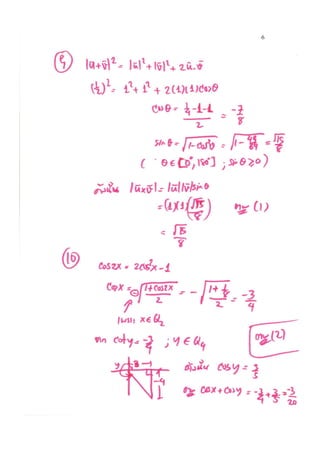 6
9) |ū+v̄|² = |ū|²+|v̄|²+2ū·v̄
(½)² = 1²+1²+2(1)(1)cosθ
cosθ = (1/4-1-1)/2 = -7/8
sinθ = √(1-cos²θ) = √(1-49/64) = √15/8
( θ∈[0°,180°] ; sinθ≥0 )
ดังนั้น |ū×v̄| = |ū||v̄|sinθ
= (1)(1)(√15/8) ตอบ (1)
= √15/8
10) cos2x = 2cos²x-1
cosx = ⊖√((1+cos2x)/2) = -√((1+1/8)/2) = -3/4
เพราะ x∈Q₂
จาก coty = -3/4 ; y∈Q₄ ตอบ (2)
y 3 -4 ดังนั้น cosy = 3/5
cosx+cosy = -3/4+3/5 = -3/20